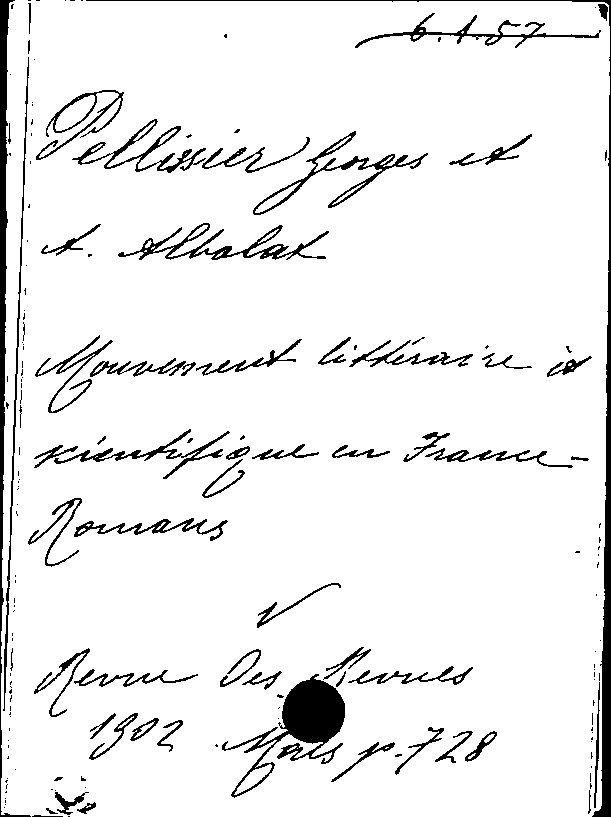 6.1.57
Pellissier Georges et
A. Albalat
Mouvement littéraire et
scientifique en France-
Romans
Revue Des Revues
1902 Mars p. 728